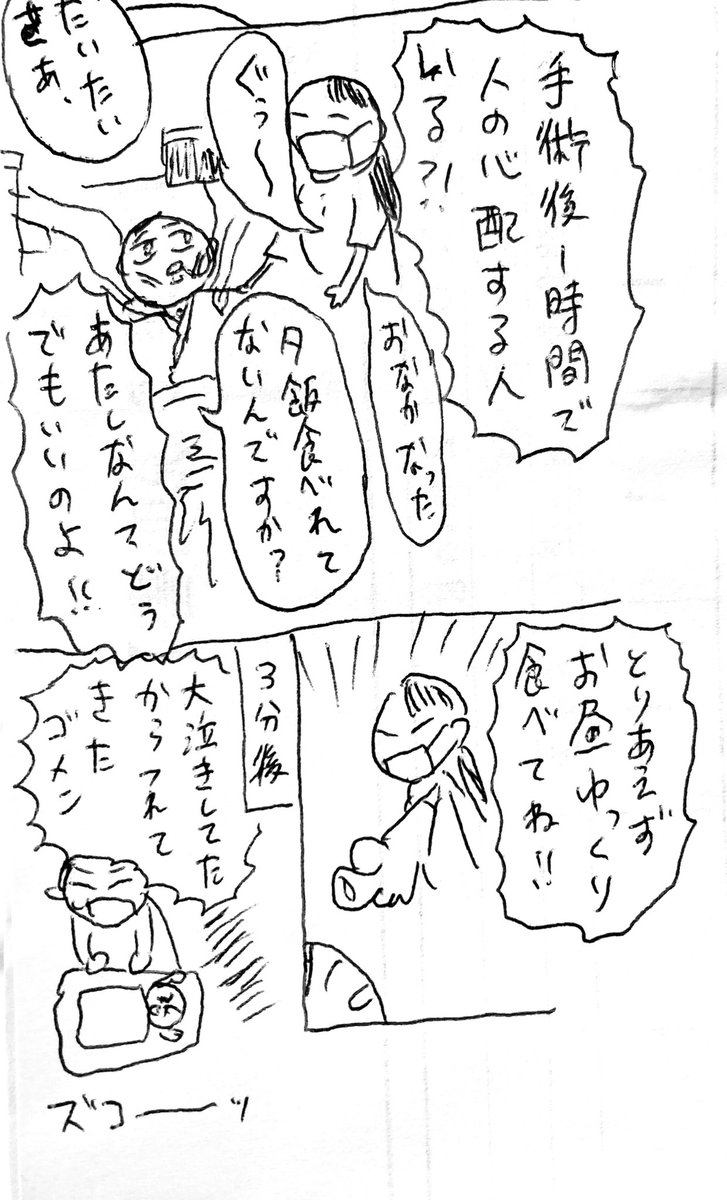 手術後1時間で
人の心配する人
いる?!
ぐぅ〜
おなかなった
だいたい
さあ、
飯食べれて
ないんですか?
あたしなんてどう
でもいいのよ!!
とりあえず
お昼ゆっくり
食べてね!!
3分後
大泣きしてた
からつれて
きた
ゴメン
ズコーーッ